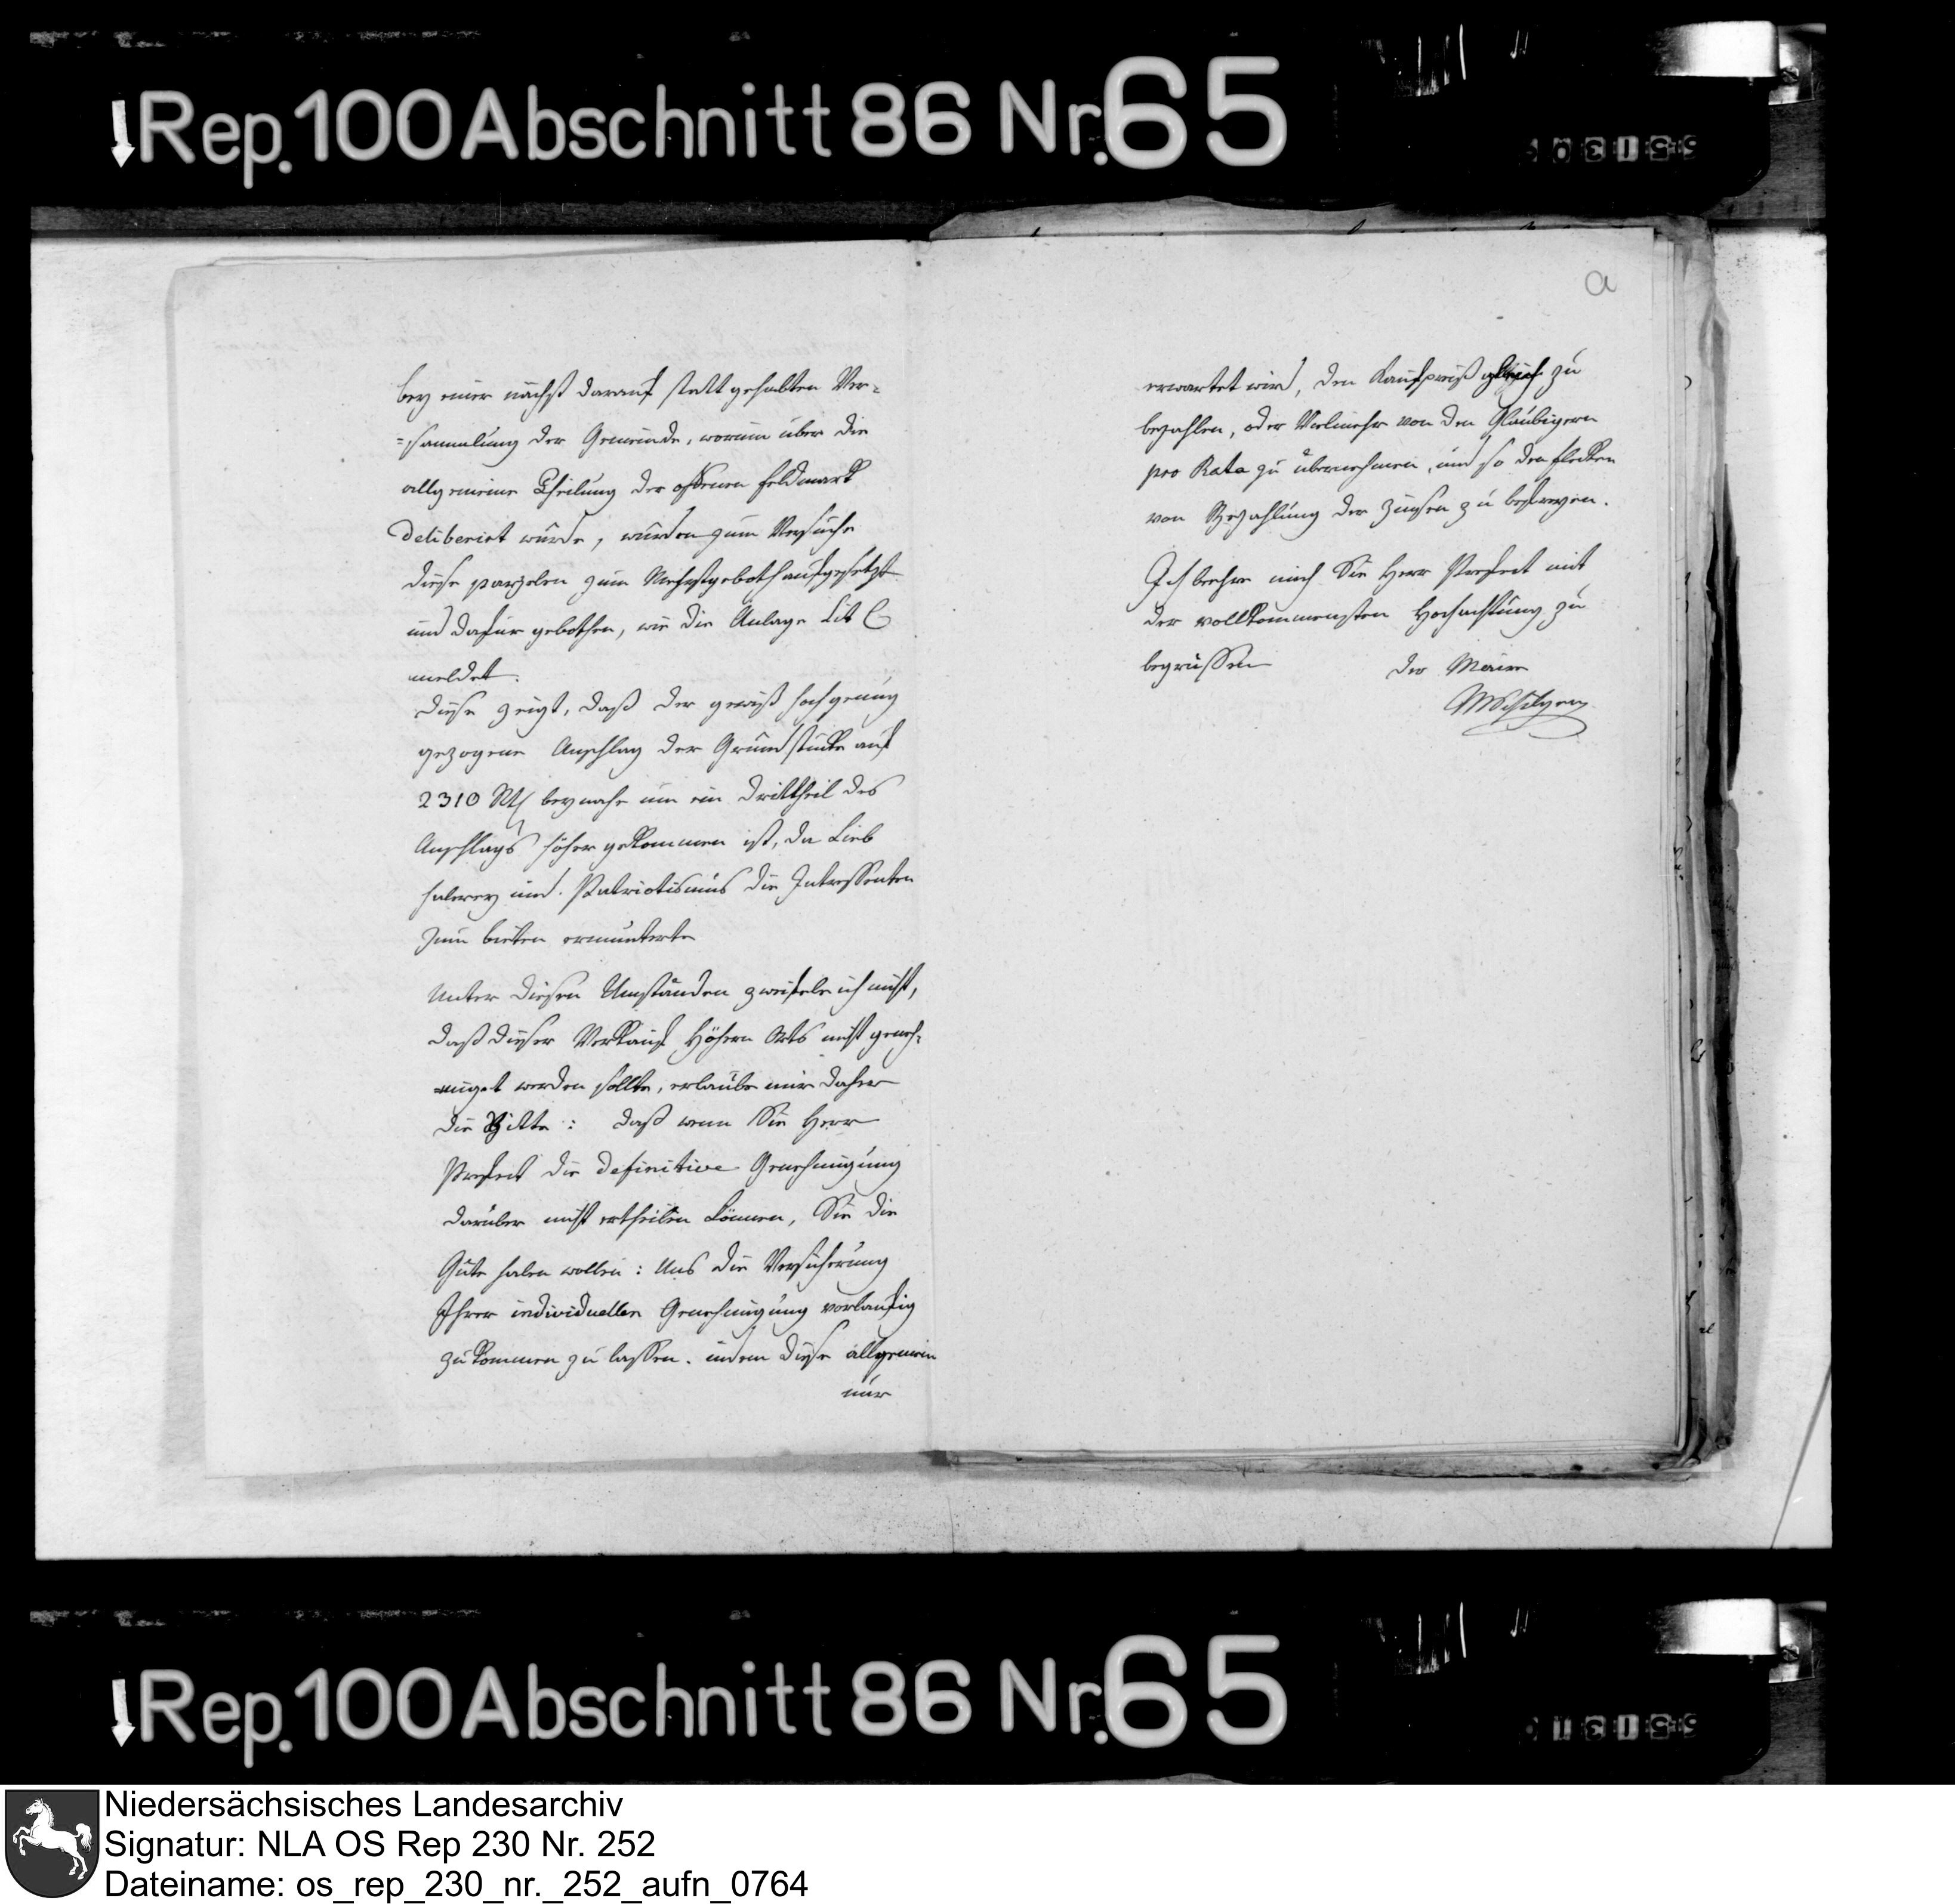 Rep. 100 Abschnitt 86 Nr. 65
bey einer nächst darauf statt gehabten Ver=
=sammlung der Gemeinde, worinn über die
allgemeine Theilung der offenen Feldmark
deliberirt wurde, wurden zum Versuche
diese parzelen zum Mehrstgeboth aufgesetzt
und dafür gebothen, wie die Anlage Lit C
meldet.
Diese zeigt, daß der gewiß hoch genug
gezogene Anschlag der Grundstücke auf
2310 Rth beynahe um ein Drittheil des
Anschlags höher gekommen ist, da Lieb
haberey und Patriotismus die Intressenten
zum bieten ermunterte
Unter diesen Umständen zweifele ich nicht,
daß dieser Verkauf höhern Orts nicht geneh=
=miget werden sollte, erlaube mir daher
die Bitte: daß wenn Sie Herr
Prefect die definitive Genehmigung
darüber nicht ertheilen können, Sie die
Güte haben wollen: Uns die Versicherung
Ihrer individuellen Genehmigung vorlaufig
zukommen zu lassen. indem diese allgemein
nur
a
erwartet wird, den Kaufpreiß gleich zu
bezahlen, oder Vielmehr von den Gläubigern
pro Rata zu übernehmen, und so den Flecken
von Bezahlung der Zinsen zu befreyen.
Ich beehre mich Sie Herr Prefect mit
der vollkommensten Hochachtung zu
begrüssen der Maire
Rep. 100 Abschnitt 86 Nr. 65
Niedersächsisches Landesarchiv
Signatur: NLA OS Rep 230 Nr. 252
Dateiname: os_rep_230_nr._252_aufn_0764